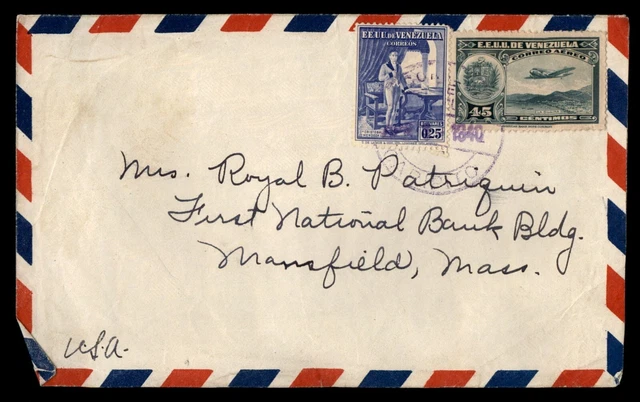 EE.UU. DE VENEZUELA
CORREOS
0.25
E.E.U.U. DE VENEZUELA
CORREO AEREO
45
CENTIMOS
1940
Mrs. Royal B. Patriquin
First National Bank Bldg.
Mansfield, Mass.
U.S.A.